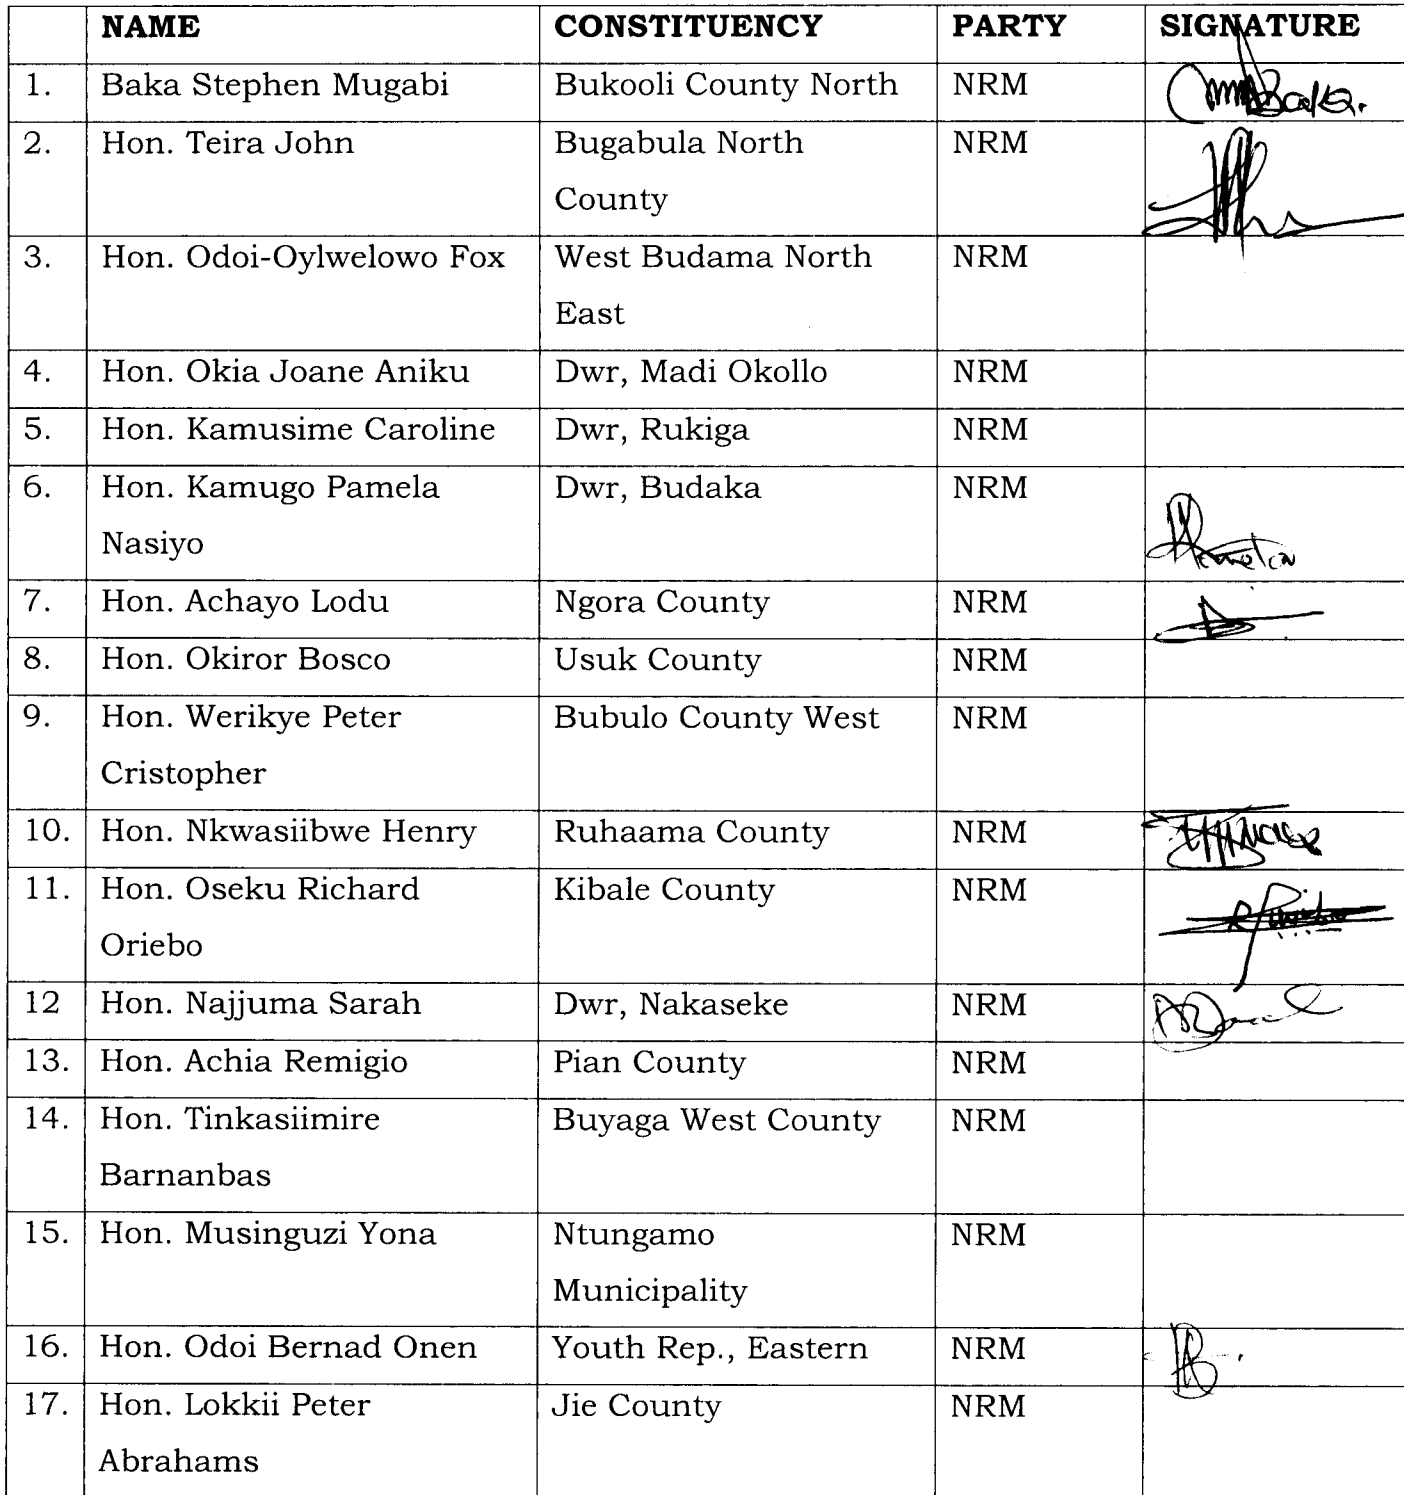 NAME CONSTITUENCY PARTY SIGNATURE
1. Baka Stephen Mugabi Bukooli County North NRM
2. Hon. Teira John Bugabula North NRM
County
3. Hon. Odoi-Oylwelowo Fox West Budama North NRM
East
4. Hon. Okia Joane Aniku Dwr, Madi Okollo NRM
5. Hon. Kamusime Caroline Dwr, Rukiga NRM
6. Hon. Kamugo Pamela Dwr, Budaka NRM
Nasiyo
7. Hon. Achayo Lodu Ngora County NRM
8. Hon. Okiror Bosco Usuk County NRM
9. Hon. Werikye Peter Bubulo County West NRM
Cristopher
10. Hon. Nkwasiibwe Henry Ruhaama County NRM
11. Hon. Oseku Richard Kibale County NRM
Oriebo
12 Hon. Najjuma Sarah Dwr, Nakaseke NRM
13. Hon. Achia Remigio Pian County NRM
14. Hon. Tinkasiimire Buyaga West County NRM
Barnanbas
15. Hon. Musinguzi Yona Ntungamo NRM
Municipality
16. Hon. Odoi Bernad Onen Youth Rep., Eastern NRM
17. Hon. Lokkii Peter Jie County NRM
Abrahams